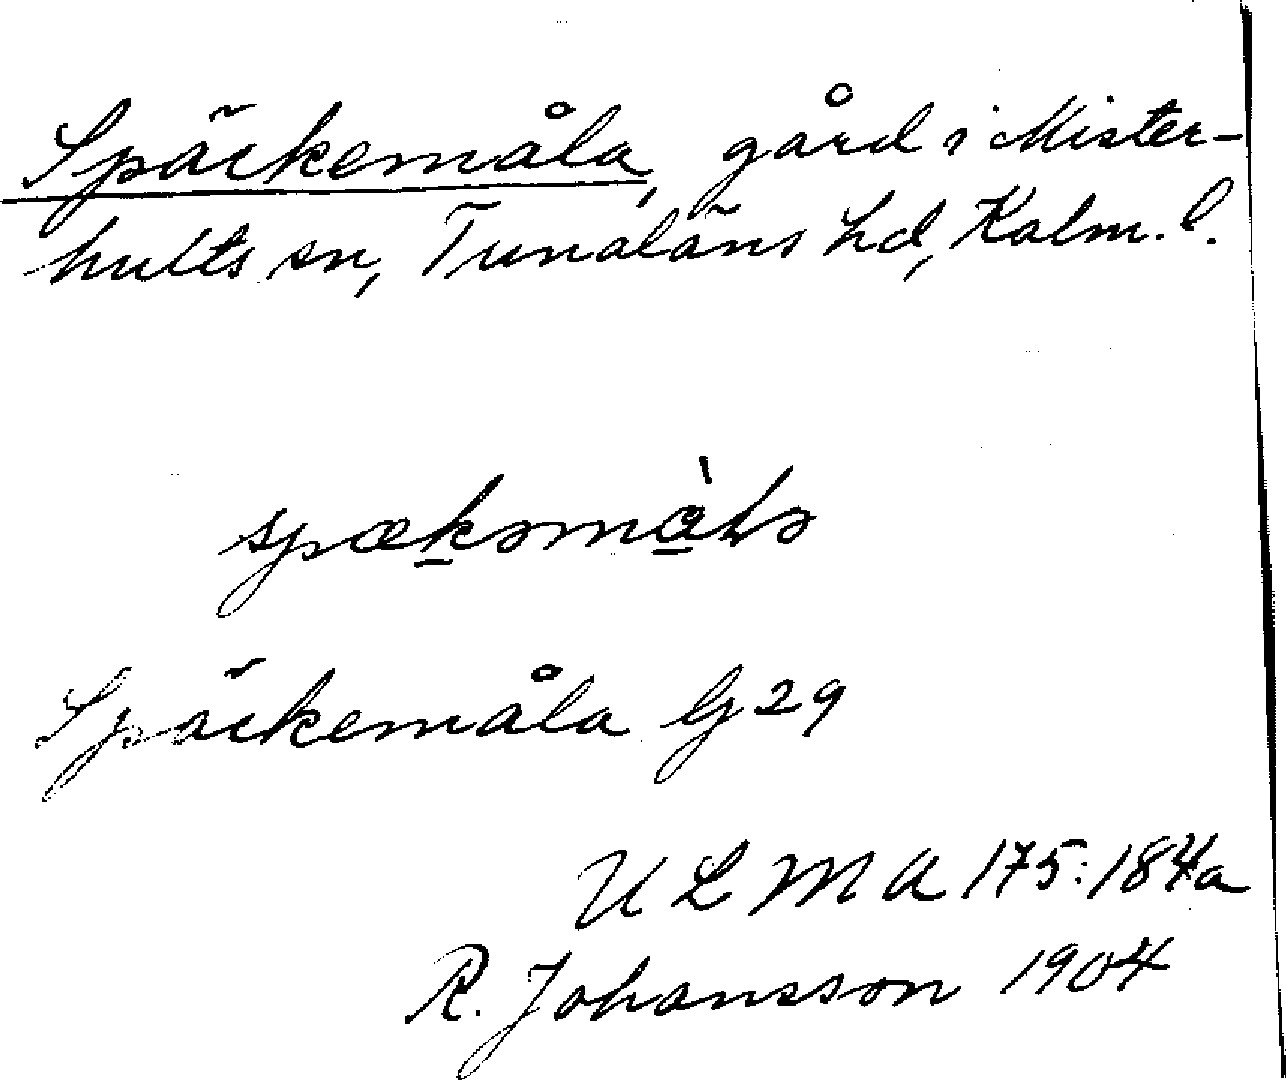 Späckemåla, gård i Mister-
hults sn, Tunaläns hd, Kalm. l.
spækəmàlə
Späckemåla G 29
ULMA 175:184a
R. Johansson 1904